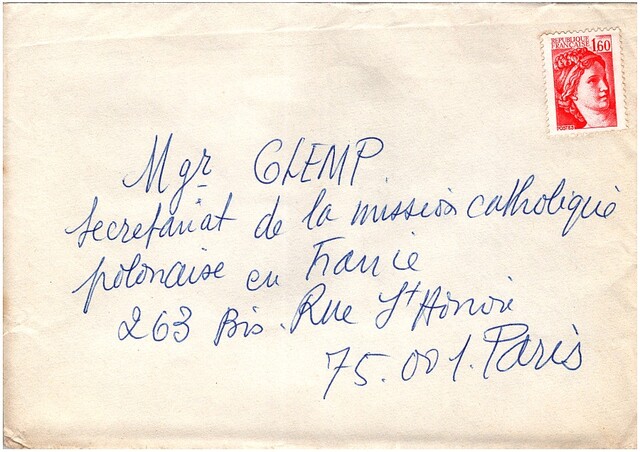 REPUBLIQUE
FRANÇAISE
1,60
POSTES
Mgr GLEMP
secretariat de la mission catholique
polonaise en France
263 Bis. Rue St Honoré
75.001. Paris